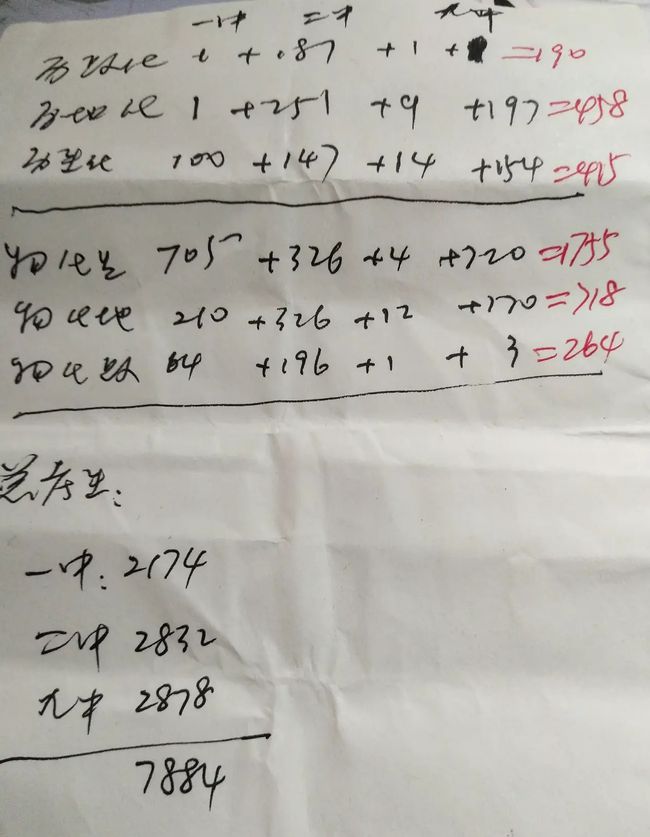 一中 二中 九中
历政化 1 +187 +1 + =190
历地化 1 +251 +9 +197=458
历生化 100 +147 +14 +154=415
物化生 705 +326 +4 +720=1755
物化地 210 +326 +12 +170=718
物化政 64 +196 +1 + 3=264
总考生:
一中: 2174
二中 2832
九中 2878
7884